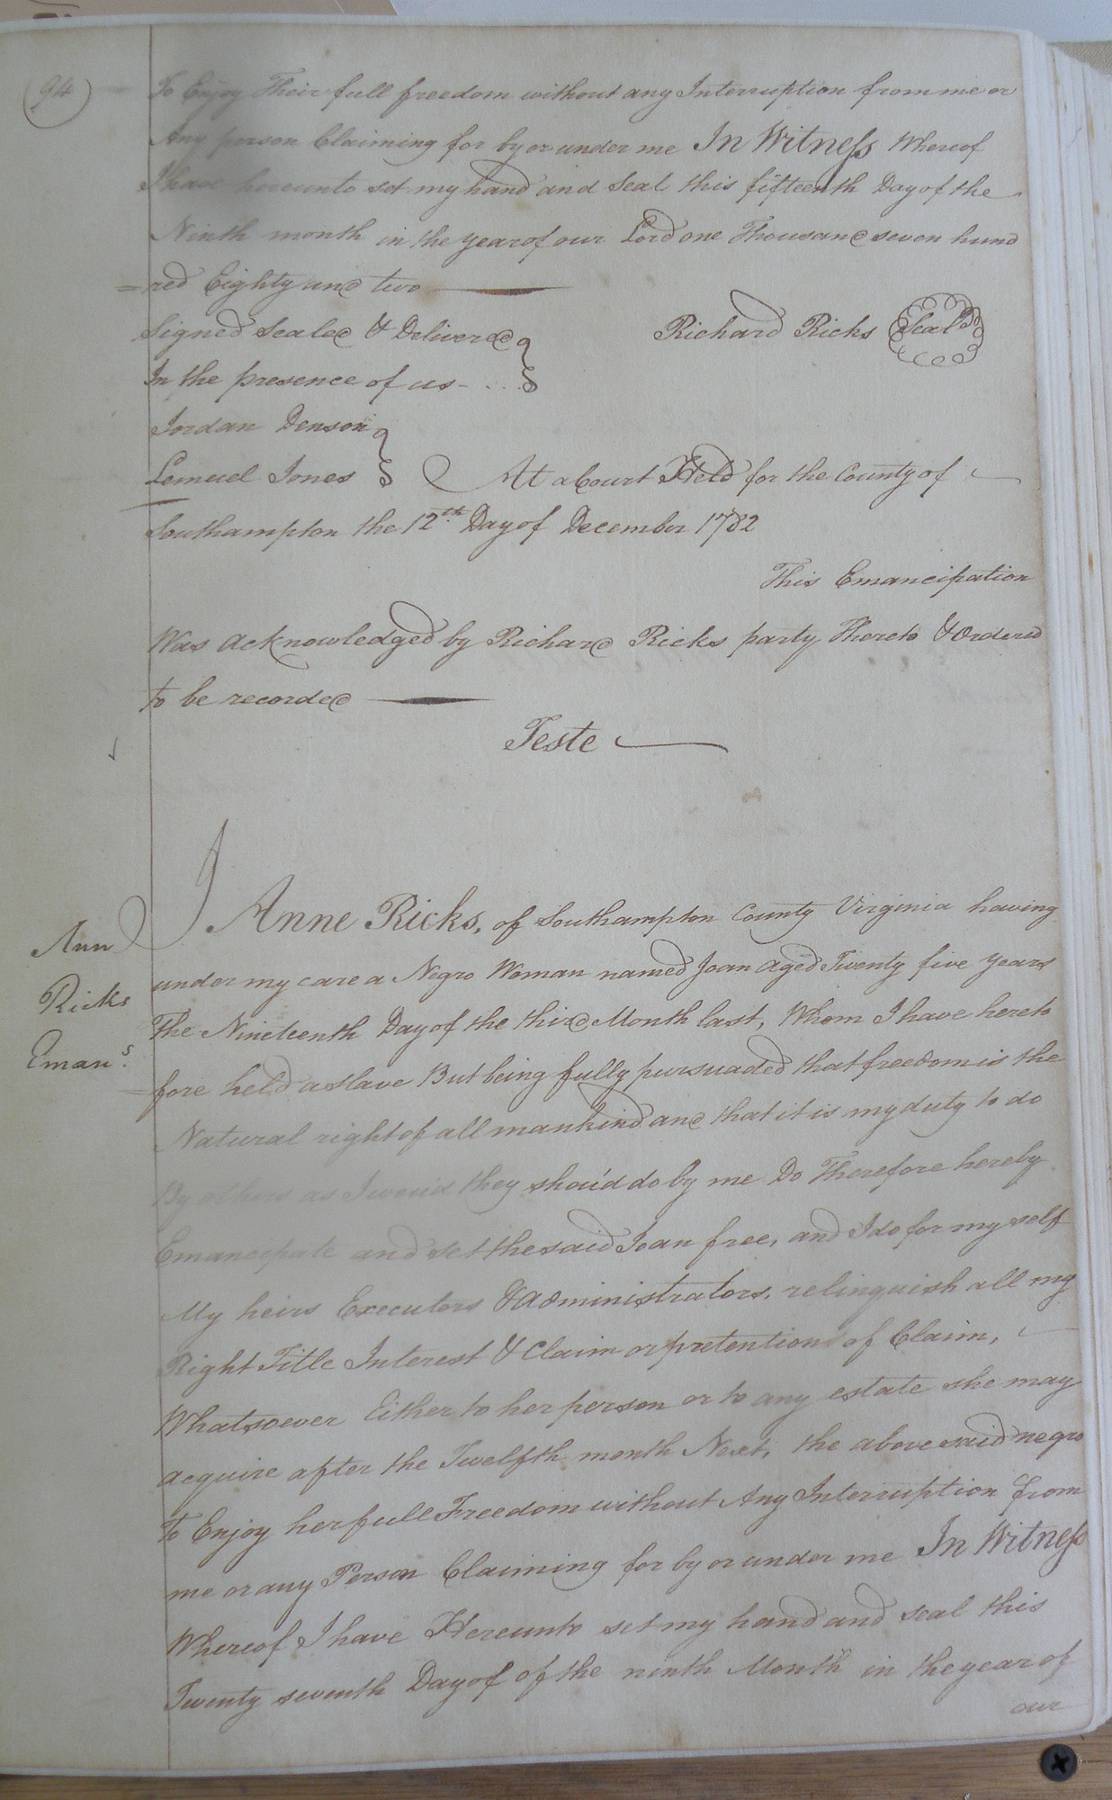 94
To Enjoy Their full freedom without any Interruption from me or
Any person Claiming for by or under me In Witness Whereof
I have hereunto set my hand and Seal this fifteenth Day of the
Ninth month in the year of our Lord one Thousand seven hund
=red Eighty and two
Signed Sealed & Delivered
In the presence of us
Richard Ricks Seal
Jordan Denson
Lemuel Jones
At a Court Held for the County of
Southampton the 12th Day of December 1782
This Emancipation
Was acknowledged by Richard Ricks party Thereto & Ordered
to be recorded
Teste
Ann
Ricks
Eman.s
I Anne Ricks, of Southampton County Virginia having
under my care a Negro Woman named Joan aged Twenty five years
The Nineteenth Day of the third Month last, Whom I have hereto
=fore held a slave But being fully pursuaded that freedom is the
Natural right of all mankind and that it is my duty to do
By others as I would they shou'd do by me Do Therefore hereby
Emancepate and set the said Joan free, and I do for my self
My heirs Executors & Administrators, relinquish all my
Right Title Interest & Claim or pretentions of Claim,
Whatsoever Either to her person or to any estate she may
acquire after the Twelfth month Next, the above said negro
To Enjoy her full Freedom without Any Interruption from
me or any Person Claiming for by or under me In Witness
Whereof I have Hereunto set my hand and seal this
Twenty seventh Day of of the ninth Month in the year of
our